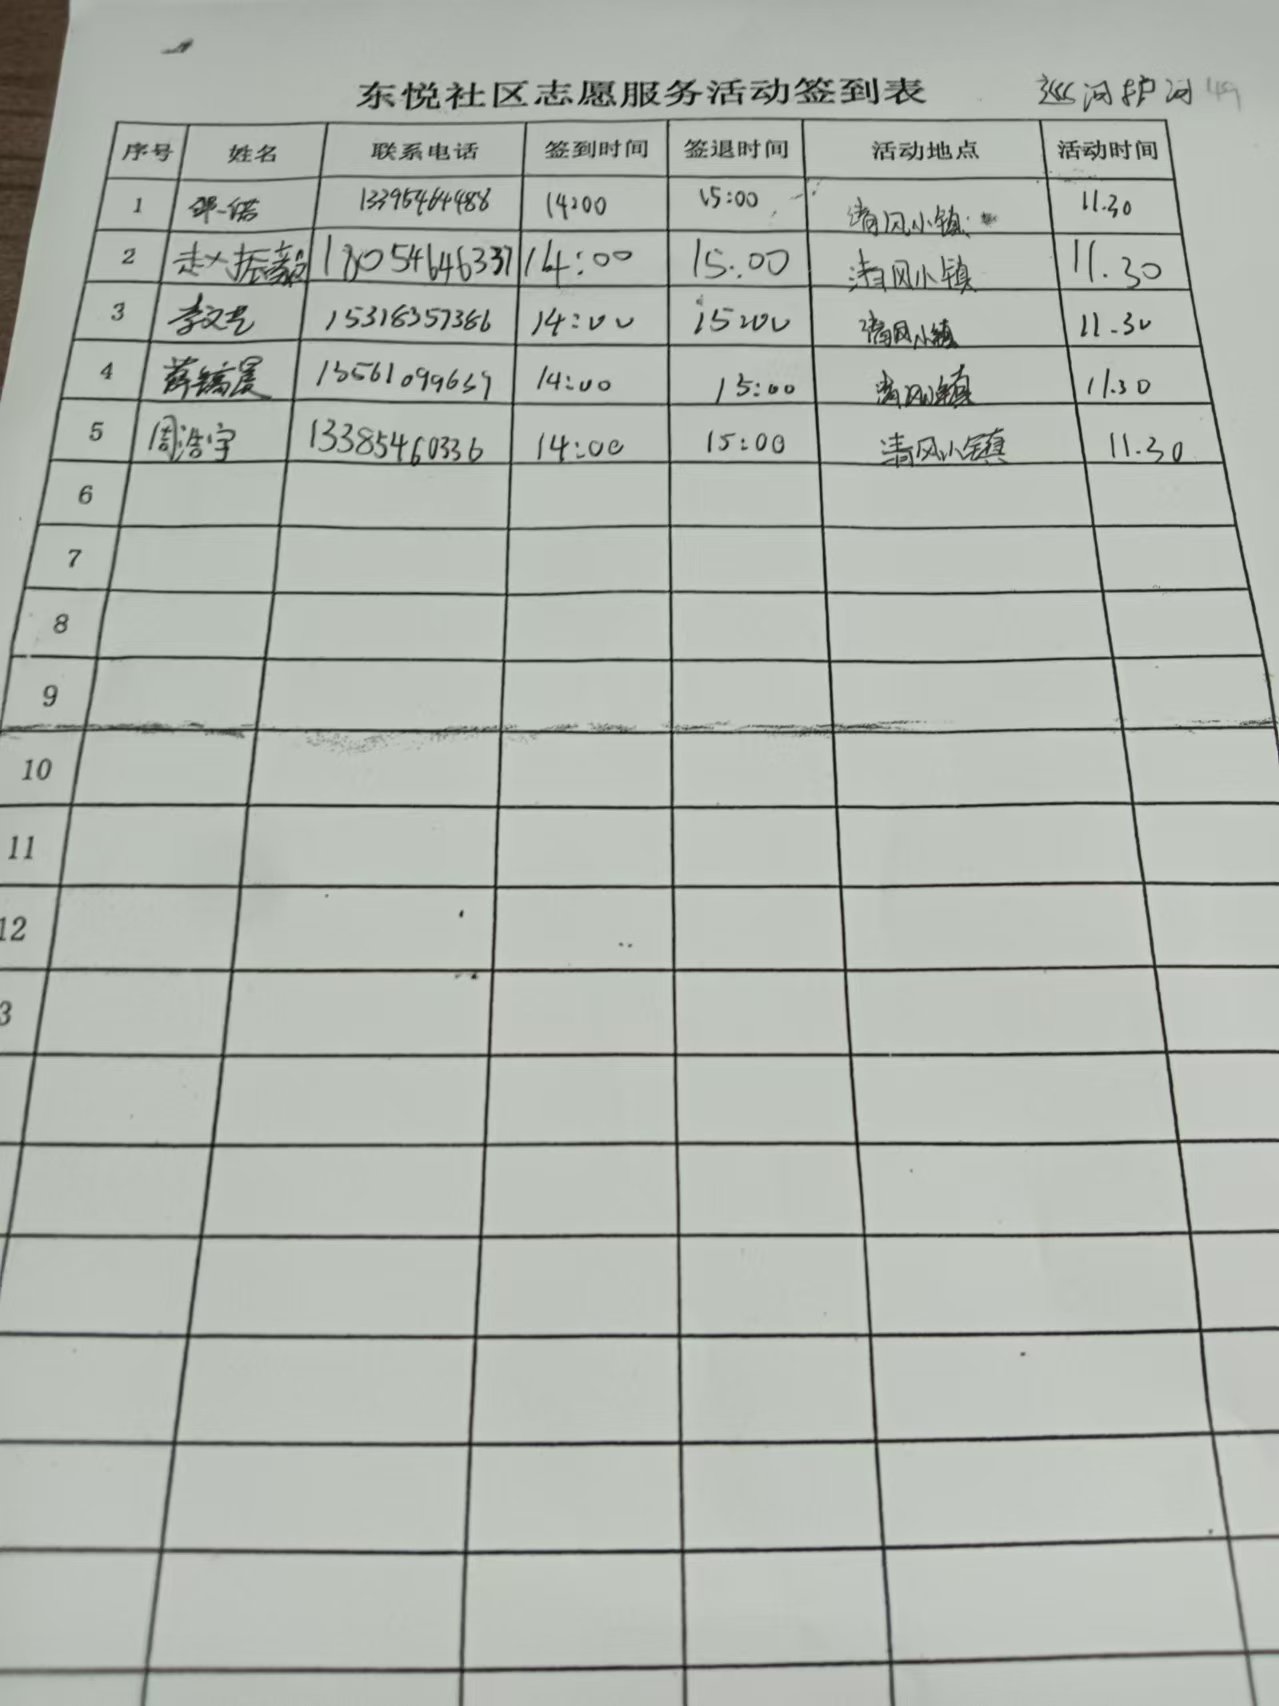 东悦社区志愿服务活动签到表 巡河护河
序号 姓名 联系电话 签到时间 签退时间 活动地点 活动时间
1 邹一诺 13395464488 14:00 15:00 清风小镇 11.30
2 赵振毅 18054646337 14:00 15:00 清风小镇 11.30
3 李文 15318357386 14:00 15:00 清风小镇 11.30
4 薛镐晨 13561099639 14:00 15:00 清风小镇 11.30
5 周浩宇 13385460336 14:00 15:00 清风小镇 11.30
6
7
8
9
10
11
12
3